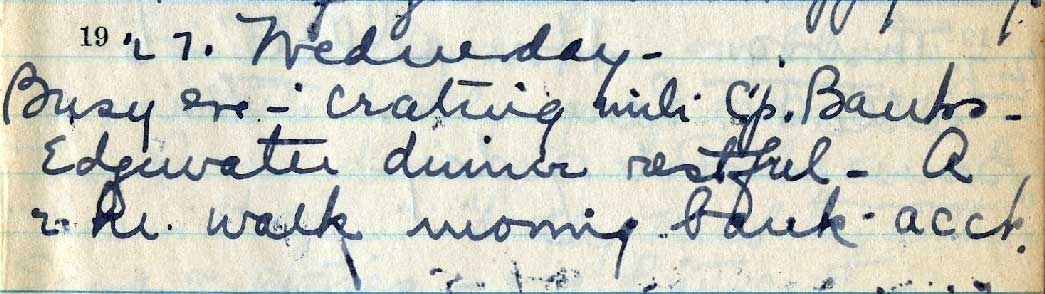 19 27. Wednesday -
Busy eve - crating mili Cp. Banks -
Edgewater dinner restful - A
2 hr. walk morning bank - acct.